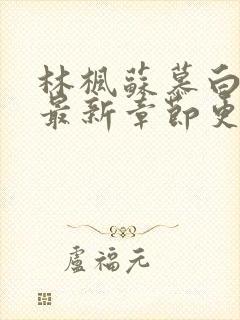 林楓蘇慕白
最新章節更
盧福元